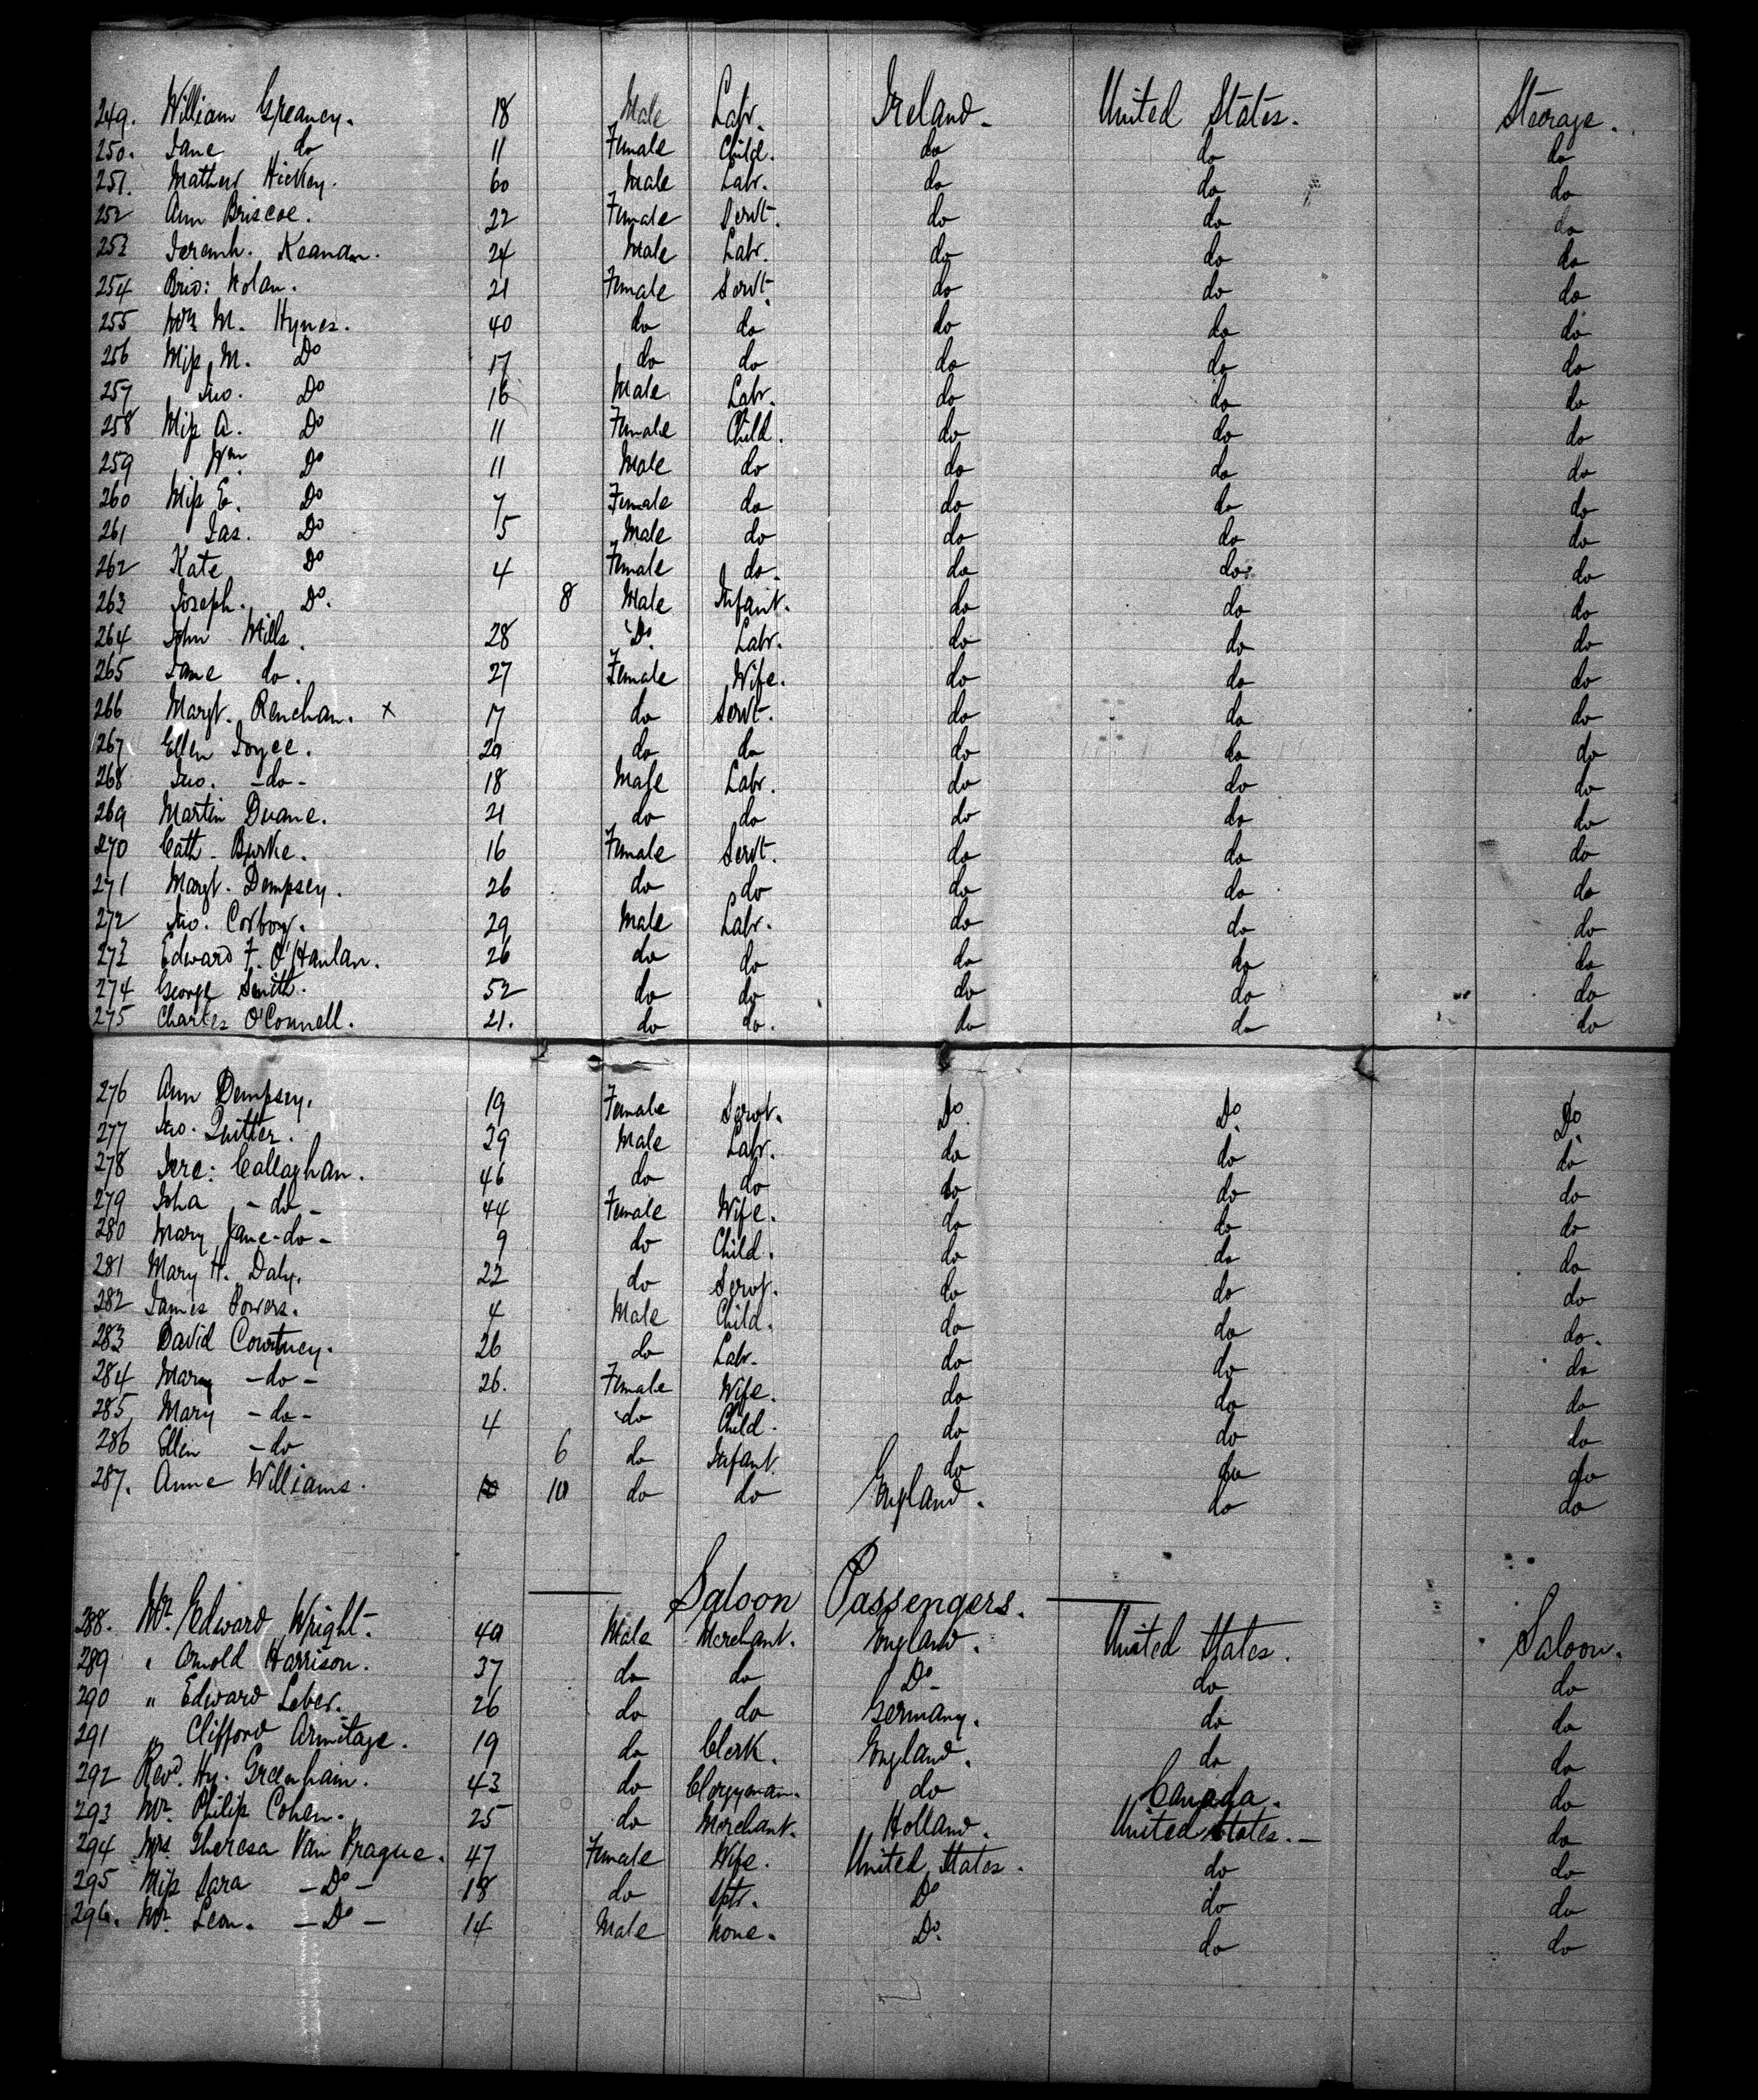 249. William Greaney. 18 Male Labr. Ireland. United States. Steerage.
250. Jane do 11 Female Child. do do do
251. Mathew Hickey. 60 Male Labr. do do do
252 Ann Briscoe. 22 Female Servt. do do do
253 Jeremh. Keandn. 24 Male Labr. do do do
254 Brid: Nolan. 21 Female Servt. do do do
255 Mrs M. Hynes. 40 do do do do do
256 Miss M. Do 17 do do do do do
257 Jno. Do 16 Male Labr. do do do
258 Miss A. Do 11 Female Child. do do do
259 Wm. Do 11 Male do do do do
260 Miss E. Do 7 Female do do do do
261 Jas. Do 5 Male do do do do
262 Kate Do 4 Female do. do do do
263 Joseph. Do. 8 Male Infant. do do do
264 John Mills. 28 Do. Labr. do do do
265 Jane do. 27 Female Wife. do do do
266 Margt. Renehan. x 17 do Servt. do do do
267 Ellen Joyce. 20 do do do do do
268 Jno. -do- 18 Male Labr. do do do
269 Martin Duane. 21 do do do do do
270 Cath. Burke. 16 Female Servt. do do do
271 Margt. Dempsey. 26 do do do do do
272 Jno. Corboy. 29 Male Labr. do do do
273 Edward F. O'Hanlan. 26 do do do do do
274 George Smith. 52 do do do do do
275 Charles O'Connell. 21. do do. do do do
276 Ann Dempsey. 19 Female Servt. Do Do. Do.
277 Jno. Quitter. 29 Male Labr. do do do
278 Jere: Callaghan. 46 do do do do do
279 Joha -do- 44 Female Wife. do do do
280 Mary Jane -do- 9 do Child. do do do
281 Mary H. Daly. 22 do Servt. do do do
282 James Powers. 4 Male Child. do do do.
283 David Courtney. 26 do Labr. do do do
284 Mary -do- 26. Female Wife. do do do
285 Mary -do- 4 do Child. do do do
286 Ellen -do 6 do Infant. do do do
287. Anne Williams. 10 do do England. do do
Saloon Passengers.
288. Mr. Edward Wright. 40 Male Merchant. England. United States. Saloon.
289 " Arnold Harrison. 37 do do Do- do do
290 " Edward Leber. 26 do do Germany. do do
291 " Clifford Armitage. 19 do Clerk. England. do do
292 Revd. Hy. Greenhain. 43 do Clergyman. do Canada. do
293 Mr. Philip Cohen. 25 do Merchant. Holland. United States.- do
294 Mrs. Theresa Van Prague. 47 Female Wife. United States. do do
295 Miss Sara -Do- 18 do Sptr. Do do do
296. Mr. Leon. -Do- 14 Male None. Do. do do